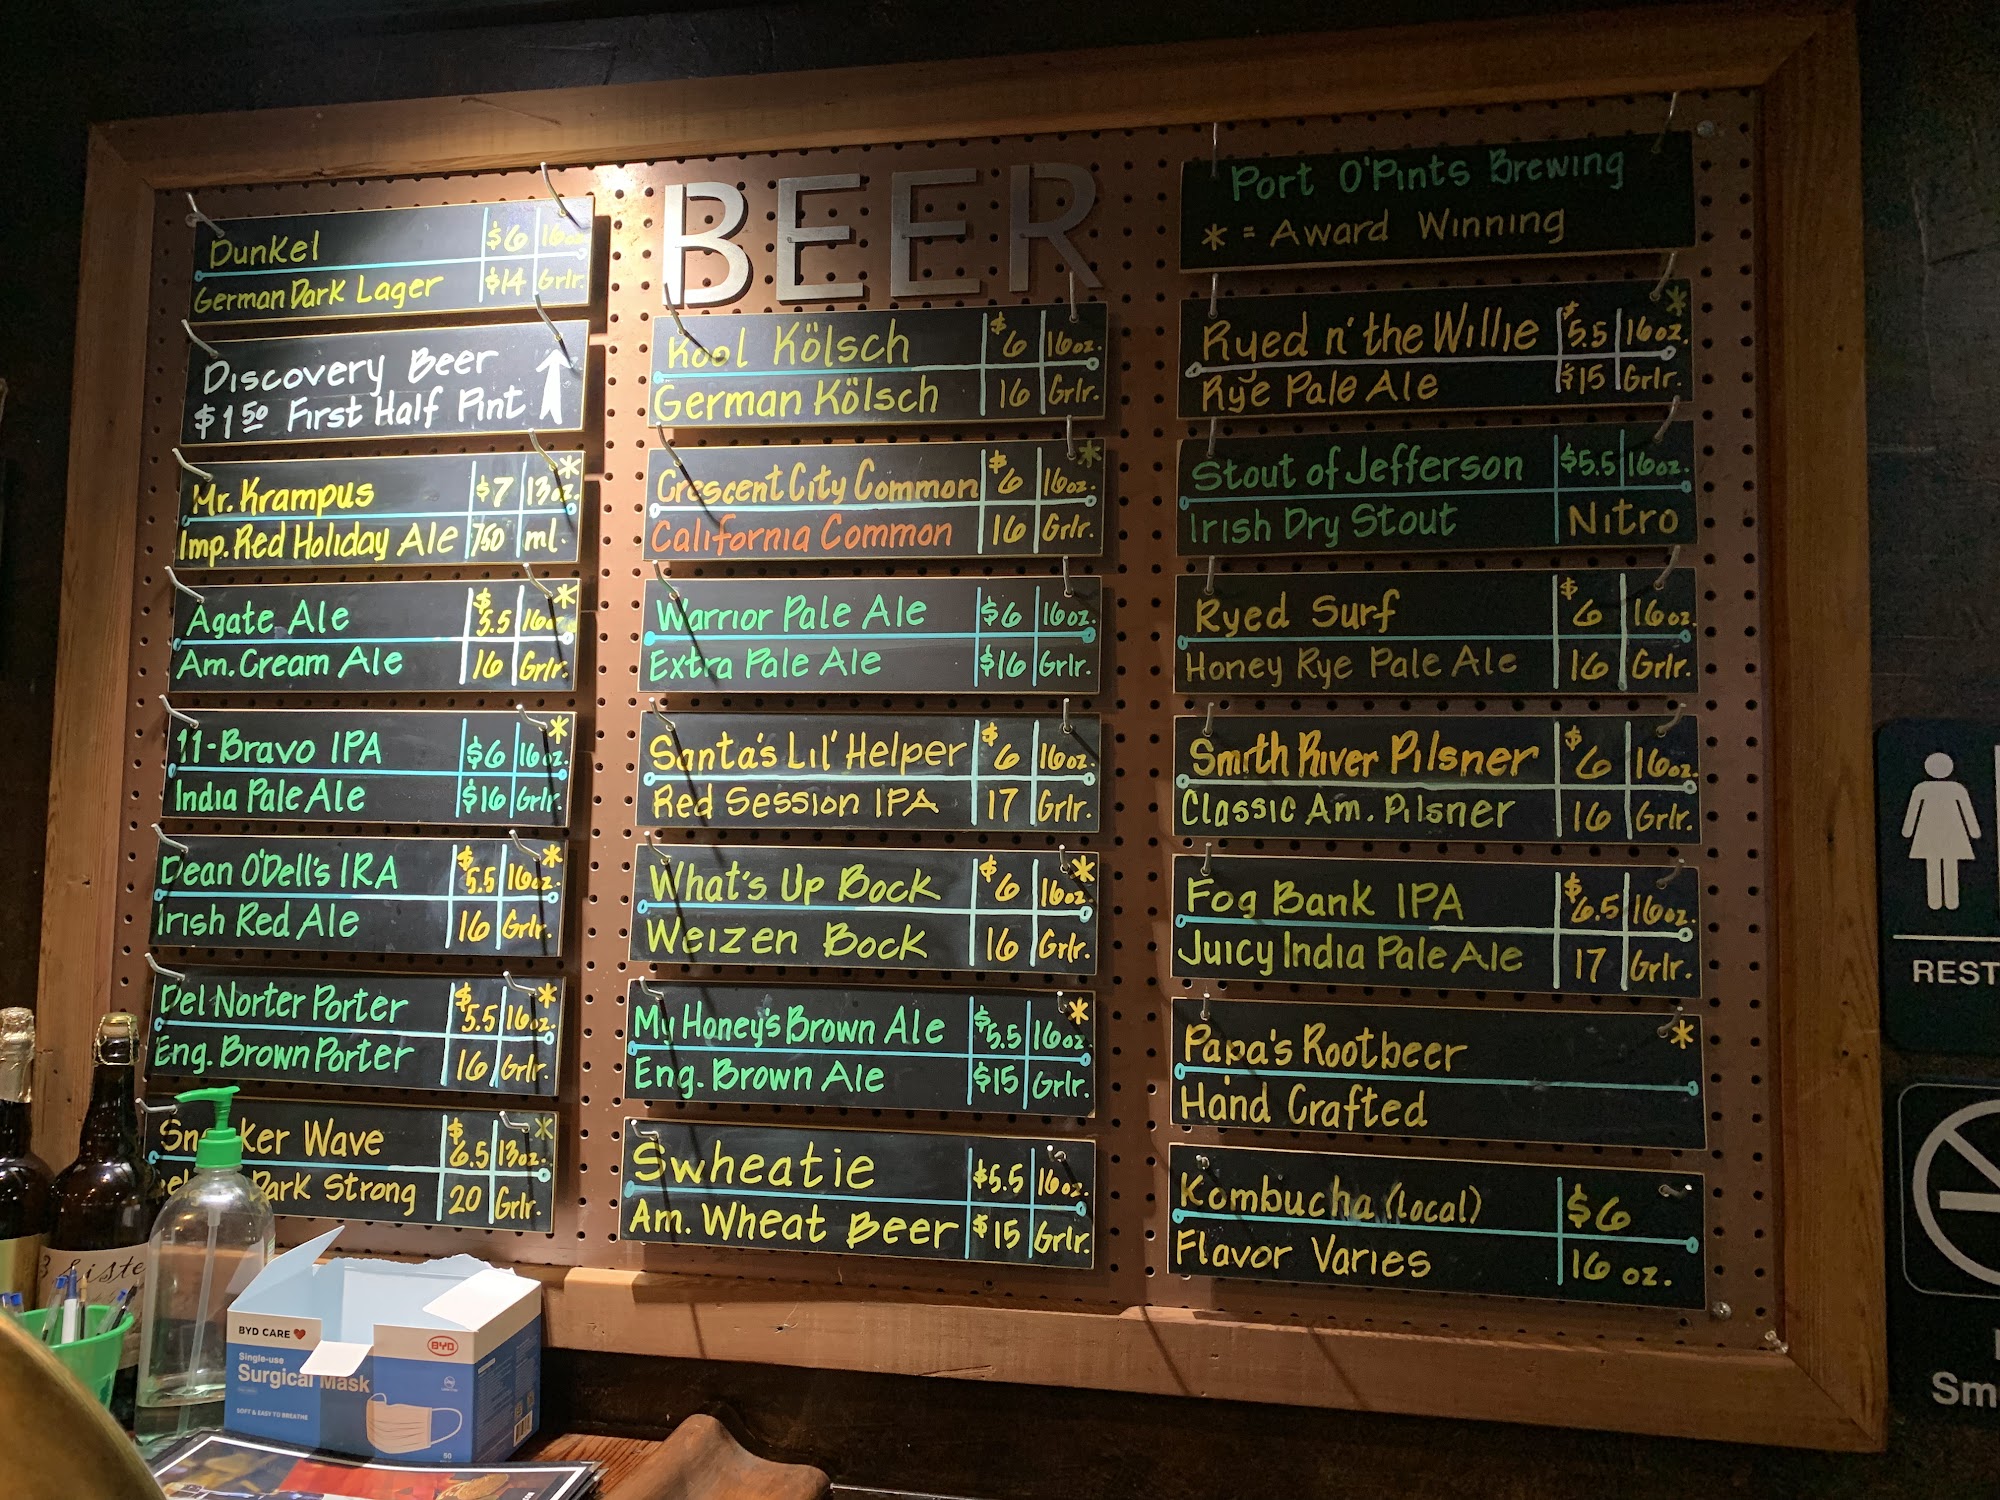 BEER
Dunkel $6 16oz.
German Dark Lager $14 Grlr.
Discovery Beer
$1.50 First Half Pint
Mr. Krampus $7 13oz. *
Imp. Red Holiday Ale 750 ml.
Agate Ale $5.5 16oz. *
Am. Cream Ale 16 Grlr.
11-Bravo IPA $6 16oz. *
India Pale Ale $16 Grlr.
Dean O'Dell's IRA $5.5 16oz. *
Irish Red Ale 16 Grlr.
Del Norter Porter $5.5 16oz. *
Eng. Brown Porter 16 Grlr.
Wave $6.5 13oz. *
Dark Strong 20 Grlr.
Kool Kölsch $6 16oz.
German Kölsch 16 Grlr.
Crescent City Common $6 16oz. *
California Common 16 Grlr.
Warrior Pale Ale $6 16oz.
Extra Pale Ale $16 Grlr.
Santa's Lil' Helper $6 16oz.
Red Session IPA 17 Grlr.
What's Up Bock $6 16oz. *
Weizen Bock 16 Grlr.
My Honey's Brown Ale $5.5 16oz. *
Eng. Brown Ale $15 Grlr.
Swheatie $5.5 16oz.
Am. Wheat Beer $15 Grlr.
Port O'Pints Brewing
* = Award Winning
Ryed n' the Willie $5.5 16oz. *
Rye Pale Ale $15 Grlr.
Stout of Jefferson $5.5 16oz.
Irish Dry Stout Nitro
Ryed Surf $6 16oz.
Honey Rye Pale Ale 16 Grlr.
Smith River Pilsner $6 16oz.
Classic Am. Pilsner 16 Grlr.
Fog Bank IPA $6.5 16oz.
Juicy India Pale Ale 17 Grlr.
Papa's Rootbeer *
Hand Crafted
Kombucha (local) $6
Flavor Varies 16 oz.
REST
Sm
BYD CARE
BYD
Single-use
Surgical Mask
SOFT & EASY TO BREATHE
50
3 Siste